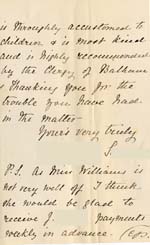 is thoroughly accustomed to
children & is most kind
and is highly recommended
by the Clergy of Balham
& Thanking you for the
trouble you have had
in the matter
Yours very truly
S.
P.S. As Miss Williams is
not very well off I think
she would be glad to
receive J. payments
weekly in advance.